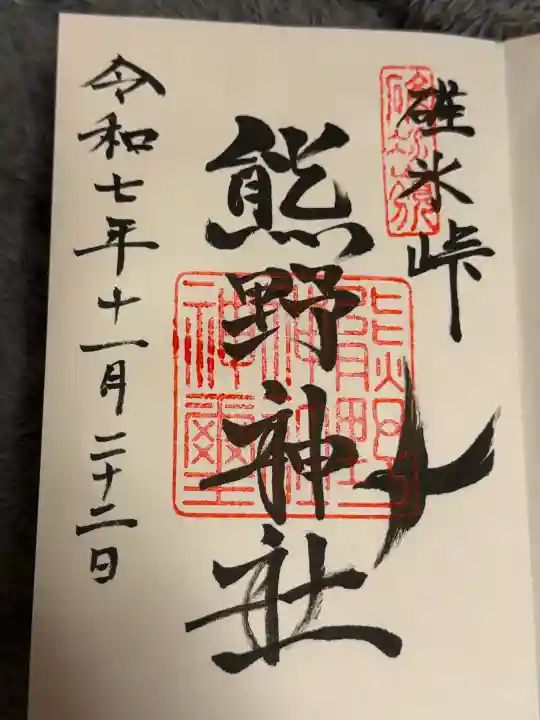 碓氷峠
熊野神社
令和七年十一月二十二日
熊野
神社
神璽